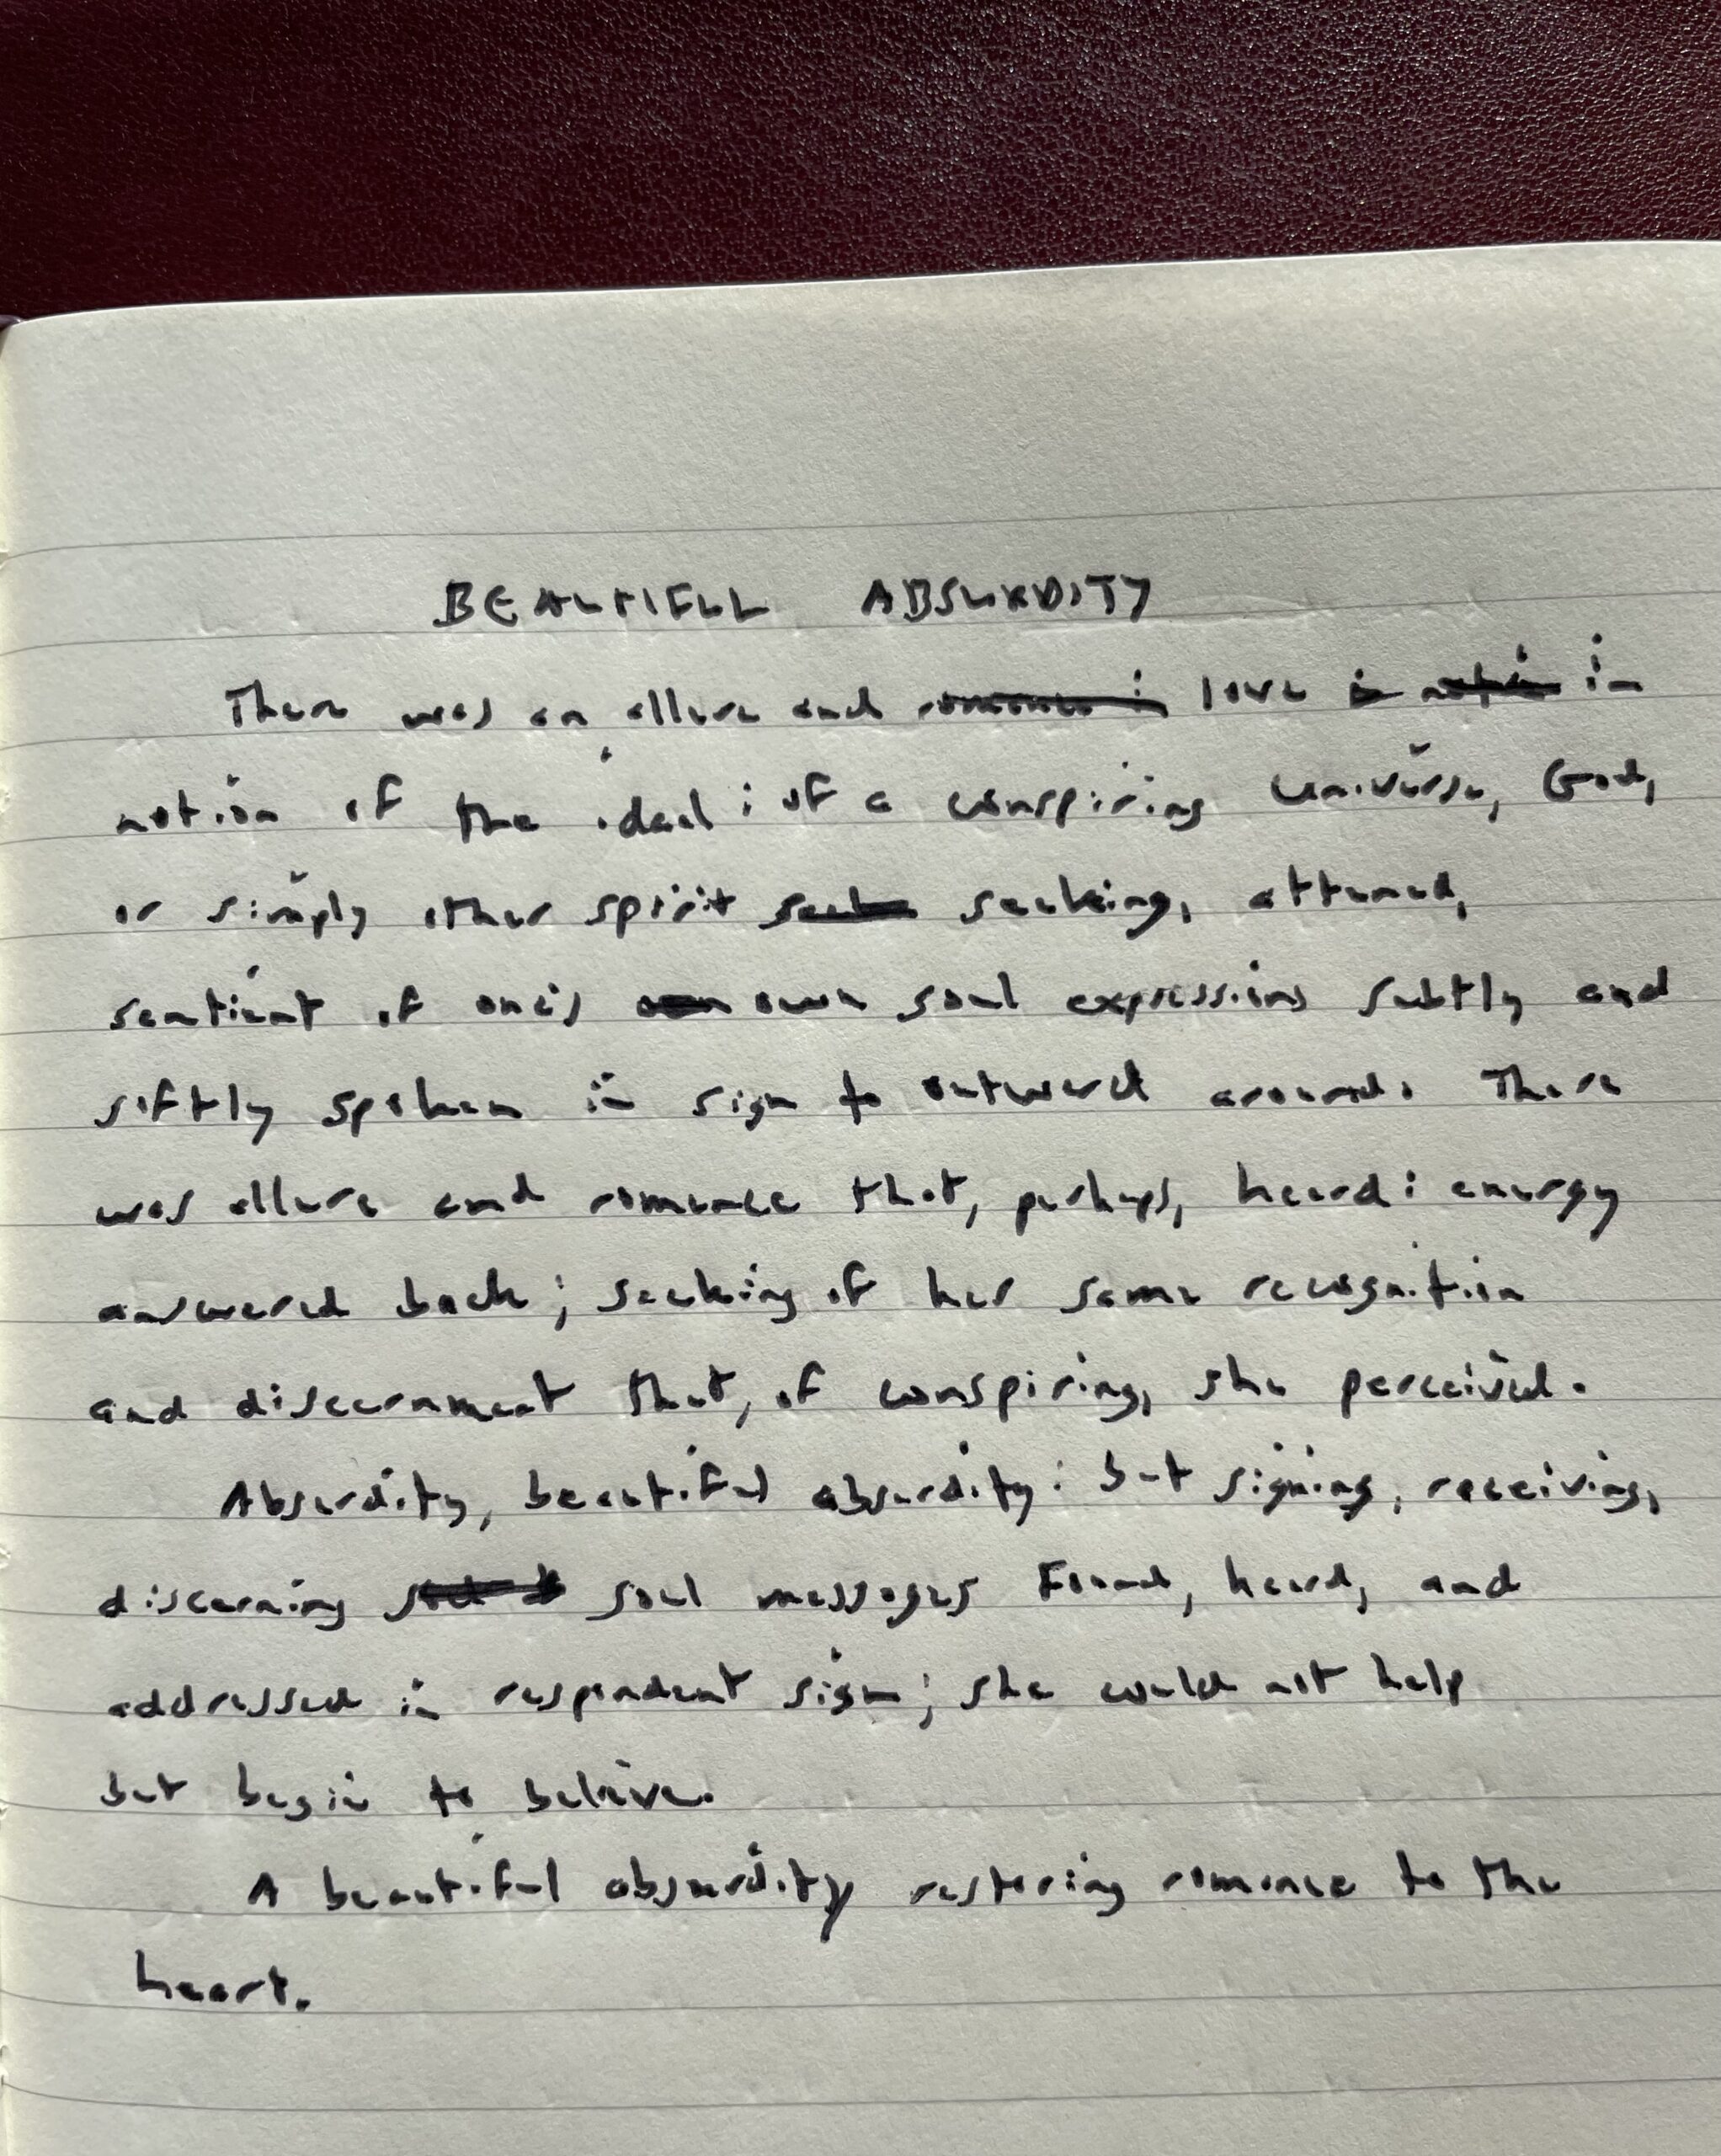 BEAUTIFUL ABSURDITY
There was an allure and love in
notion of the ideal: of a conspiring Universe, God,
or simply other spirit seeking, attuned,
sentient of one's own soul expressions subtly and
softly spoken in sign to outward around. There
was allure and romance that, perhaps, heard: energy
answered back; seeking of her same recognition
and discernment that, of conspiring, she perceived.
Absurdity, beautiful absurdity: but signing, receiving,
discerning soul messages found, heard, and
addressed in respondent sign; she could not help
but begin to believe.
A beautiful absurdity restoring romance to the
heart.